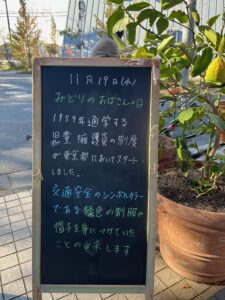 11月19日(水)
みどりのおばさんの日
1959年通学する
児童擁護員の制度
が東京都においてスタート
しました。
交通安全のシンボルカラー
である緑色の制服や
帽子を身につけていた
ことの由来します